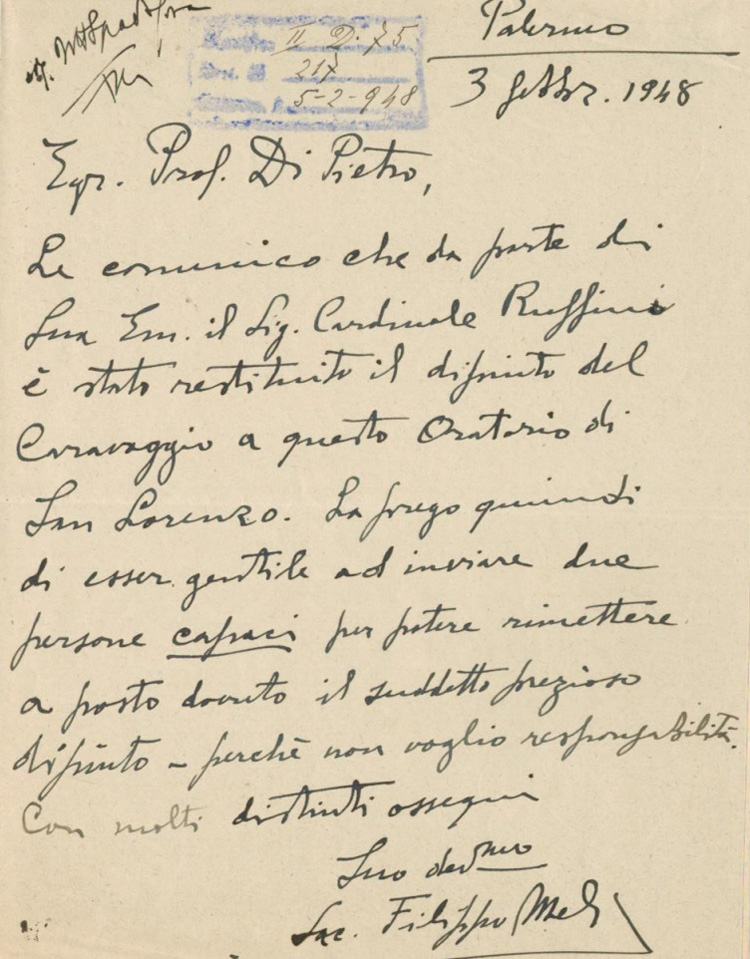 Palermo
II D. 75
217
5-2-948
3 febbr. 1948
Egr. Prof. Di Pietro,
Le comunico che da parte di
Sua Em. il Sig. Cardinale Ruffini
è stato restituito il dipinto del
Caravaggio a questo Oratorio di
San Lorenzo. La prego quindi
di esser gentile ad inviare due
persone capaci per potere rimettere
a posto dovuto il suddetto prezioso
dipinto – perchè non voglio responsabilità.
Con molti distinti ossequi
Suo dev.mo
Sac. Filippo Meli